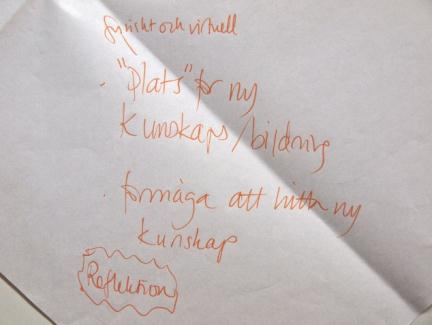 fysiskt och virtuell
. "Plats" för ny
kunskaps/bildning
. förmåga att hitta ny
kunskap
Reflektion